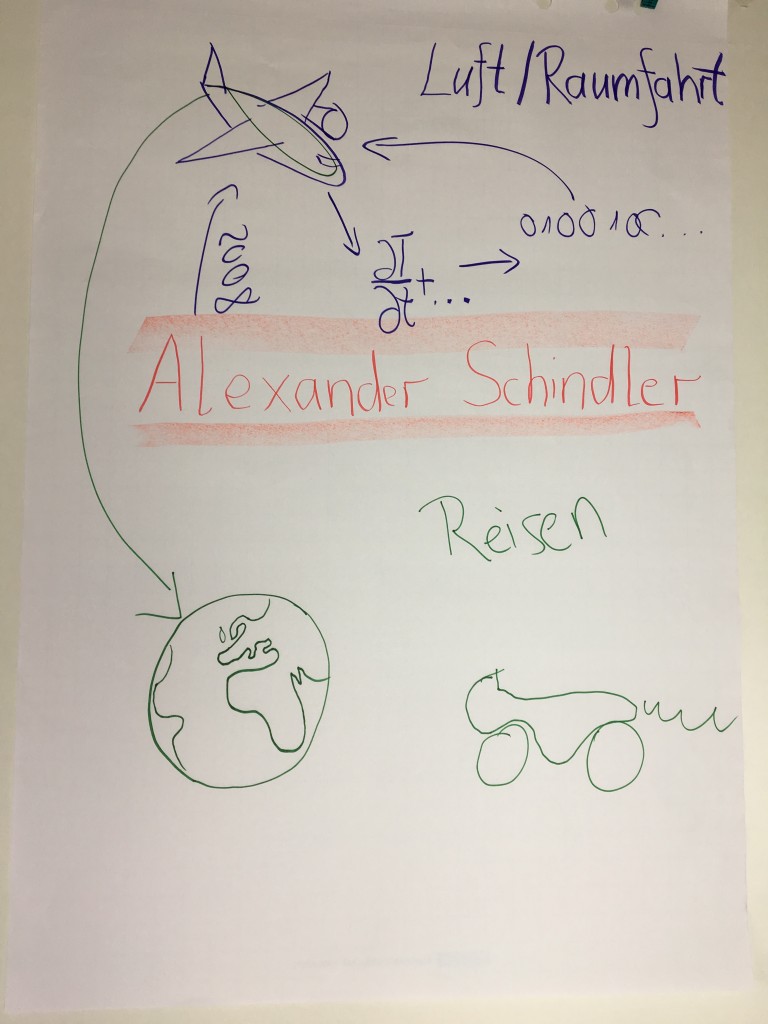 Luft/Raumfahrt
010010...
2008
∂T/∂t+...
Alexander Schindler
Reisen